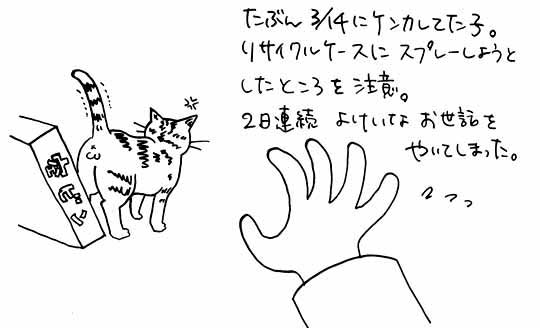 たぶん 3/14にケンカしてた子。
リサイクルケースに スプレーしようと
したところを 注意。
2日連続 よけいなお世話を
やいてしまった。